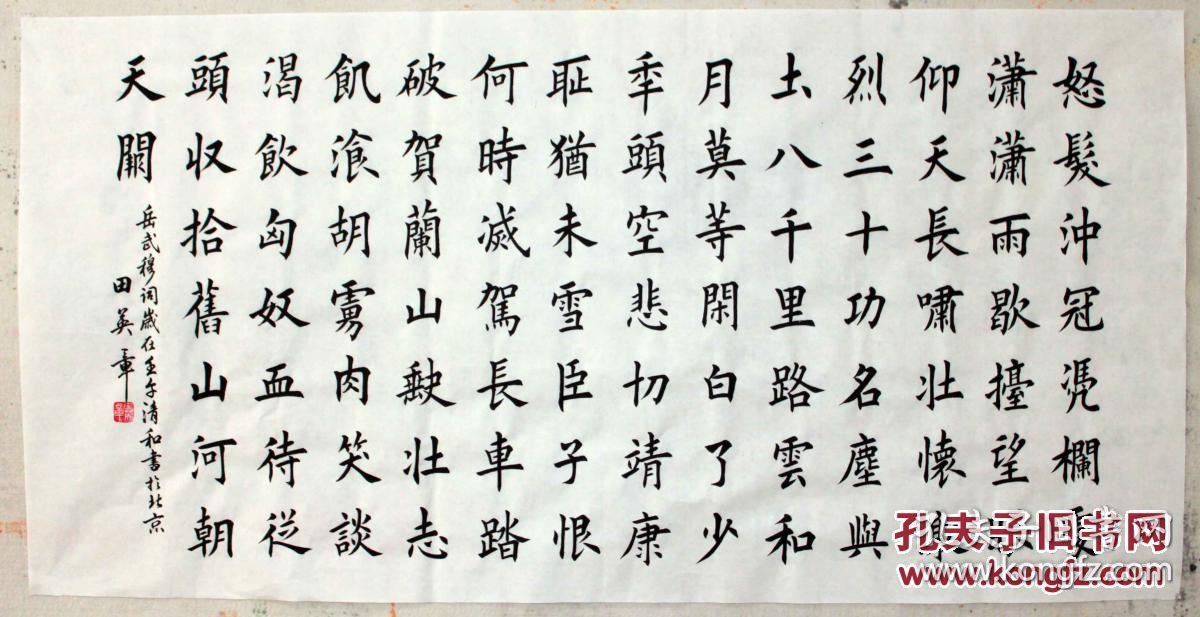 怒髮沖冠凴欄
瀟瀟雨歇擡望
仰天長嘯壯懷
烈三十功名塵與
土八千里路雲和
月莫等閑白了少
年頭空悲切靖康
耻猶未雪臣子恨
何時滅駕長車踏
破賀蘭山缺壯志
飢飡胡虜肉笑談
渴飲匈奴血待從
頭收拾舊山河朝
天闕
岳武穆词歲在壬午清和書於北京
田英章
孔夫子旧书网
www.kongfz.com